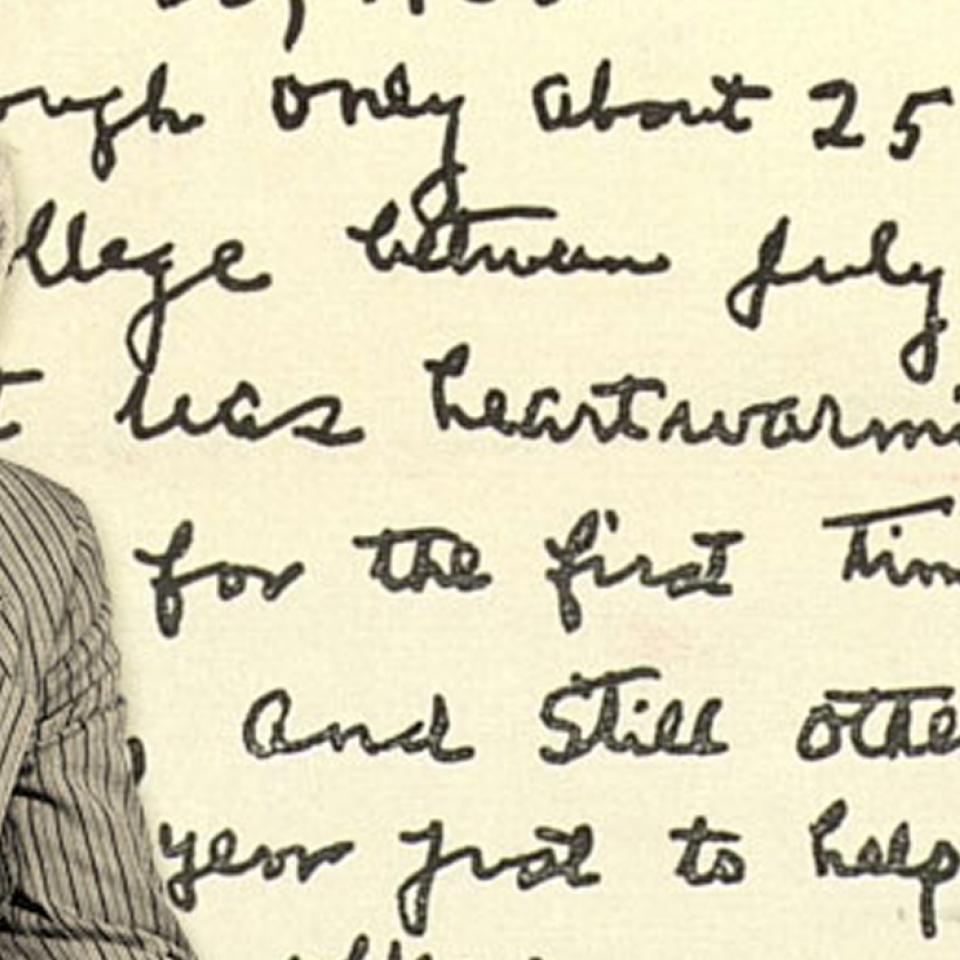 ough only about 25
llege between July
t was heartwarmi
for the first tim
, and still othe
year just to help